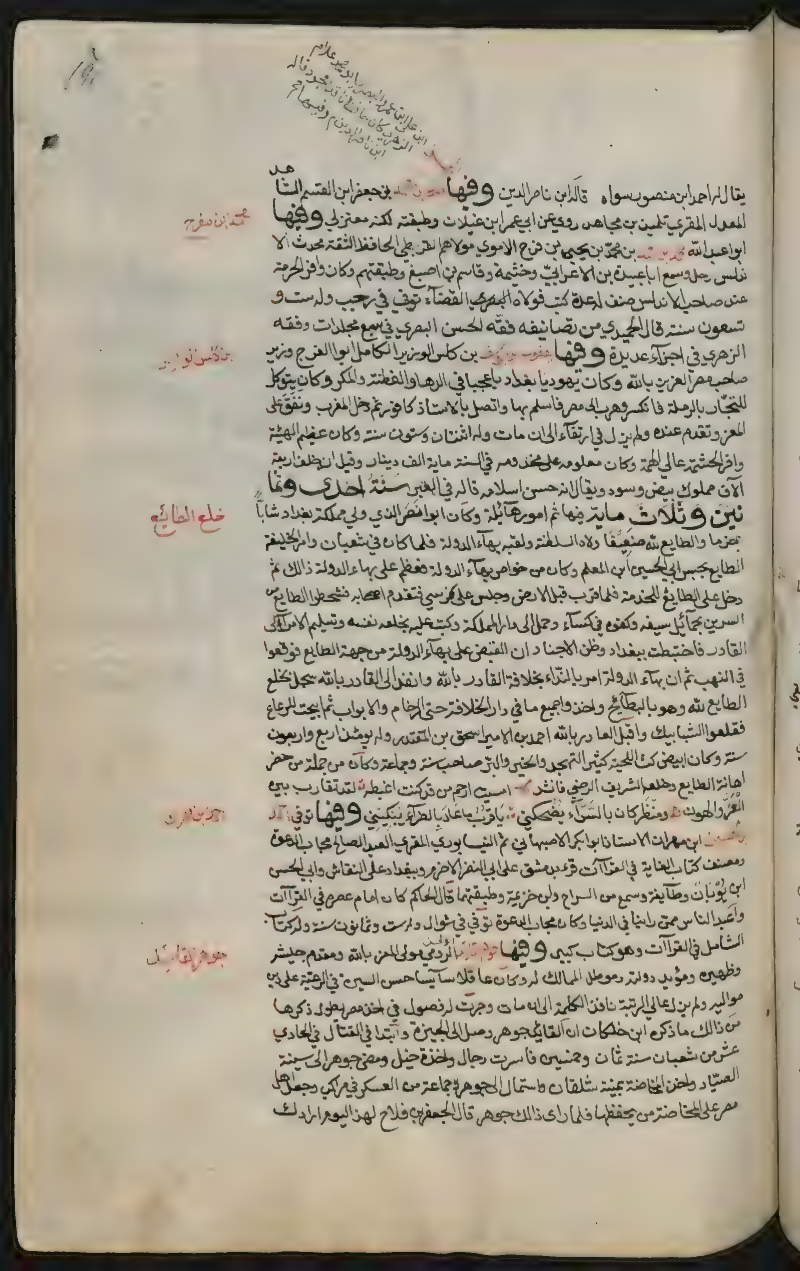 ابن علي ابن عمرو
ابن ناصر الدين
يقال له احمد ابن منصور سواه قاله ابن ناصر الدين وفيها بن جعفر ابن القسم الشاهد
المعدل المقري تلميذ بن مجاهد روي عن ابي عمر ابن غيلان وطبقته لكنه معتزلي وفيها
ابو عبد الله بن محمد بن يحيى بن فرج الاموي مولاهم القرطبي الحافظ الثقة محدث الا
ندلس رحل وسمع ابا سعيد بن الاعرابي وخيثمة وقاسم بن اصبغ وطبقتهم وكان وافر الحرمة
عند صاحب الاندلس صنف له عدة كتب فولاه القضاء توفي في رجب وله ست و
تسعون سنة قال الحميدي من تصانيفه فقه الحسن البصري في سبع مجلدات وفقه
الزهري في اجزاء عديدة وفيها يعقوب بن يوسف بن كلس الوزير الكامل ابوا الفرج وزير
صاحب مصر العزيز بالله وكان يهوديا بغداديا عجبا في الدهاء والفطنة والمكر وكان يتوكل
للتجار بالرملة فانكسر وهرب الى مصر فاسلم بها واتصل بالاستاذ كافور ثم دخل المغرب ونفق على
المعز وتقدم عنده ولم يزل في ارتقاء الى ان مات وله اثنتان وستون سنة وكان عظيم الهيئة
وافر الحشمة عالي الهمة وكان معلومه على مخدومه في السنة ماية الف دينار وقيل انه خلف اربعة
الاف مملوك بيض وسود ويقال انه حسن اسلامه قاله في العبر سنة احدى وثما
نين وثلاث ماية فيها تم امور هائلة وكان ابو نصر الذي ولي مملكة بغداد شابا
والطايع لله ضعيفا ولاه السلطنة ولقبه بهاء الدولة فلما كان في شعبان وامر الخليفة
الطايع بحبس ابي الحسين ابن المعلم وكان من خواص بهاء الدولة فعظم على بهاء الدولة ذالك ثم
دخل على الطايع للخدمة فلما قرب قبل الارض وجلس على كرسي فتقدم اصحابه فشحطوا الطايع من
السرير بحمائل سيفه ولفوه في كساء وحمل الى دار المملكة وكتب عليه بخلعه نفسه وتسليم الامر الى
القادر فاختبطت بغداد وظن الاجناد ان القبض على بهاء الدولة من جهة الطايع فوقعوا
في النهب ثم ان بهاء الدولة امر بالنداء بخلافة القادر بالله وانفذ الى القادر بالله سجل بخلع
الطايع لله وهو بالبطائح واخذوا جميع ما في دار الخلافة حتى الرخام والابواب ثم ابيحت للرعاع
فقلعوا الشبابيك واقبل القادر بالله احمد بن الامير اسحق بن المقتدر وله يومئذ اربع واربعون
سنة وكان ابيض كث اللحية كثير التهجد والخير والبر صاحب سنة وجماعة وكان من جملة من حضر
اهانة الطايع وخلعه الشريف الرضي فانشد امسيت ارحم من قد كنت اغبطه لقد تقارب بين
العز والهون ومنظر كان بالسراء يضحكني يا قرب ما عاد بالضراء يبكيني وفيها توفي
ابن مهران الاستاذ ابو بكر الاصبهاني ثم النيسابوري المقري العبد الصالح مجاب الدعوة
ومصنف كتاب الغاية في القراآت قرء بدمشق على ابي النضر الاخرم وببغداد على النقاش وابي الحسن
ابن بويان وطايفة وسمع من السراج وابن خزيمة وطبقتهما قال الحاكم كان امام عصره في القراآت
واعبد الناس ممن راينا في الدنيا وكان مجاب الدعوة توفي في شوال وله ست وثمانون سنة وله كتاب
الشامل في القراآت وهو كتاب كبير وفيها الرومي مولى المعز بالله ومقدم جيشه
وظهيره ومؤيد دولته وموطئ الممالك له وكان عاقلا سايسا حسن السيرة في الرعية على دين
مواليه ولم يزل عالي الرتبة نافذ الكلمة الى ان مات وجرت له فصول في اخذ مصر يطول ذكرها
من ذالك ما ذكره ابن خلكان ان القائد جوهر وصل الى الجيزة وابتدا في القتال في الحادي
عشر من شعبان سنة ثمان وخمسين فاسرت رجال واخذت خيل ومضى جوهر الى منية
الصيادين واخذ المخاضة بمنية شلقان واستمال الى جوهر جماعة من العسكر في مراكب وجعل اهل
مصر على المخاضة من يحفظها فلما راى ذالك جوهر قال لجعفر بن فلاح لهذا اليوم ارادك
محمد بن مفرج
بن كلس الوزير
خلع الطائع
احمد بن مهران
جوهر القائد